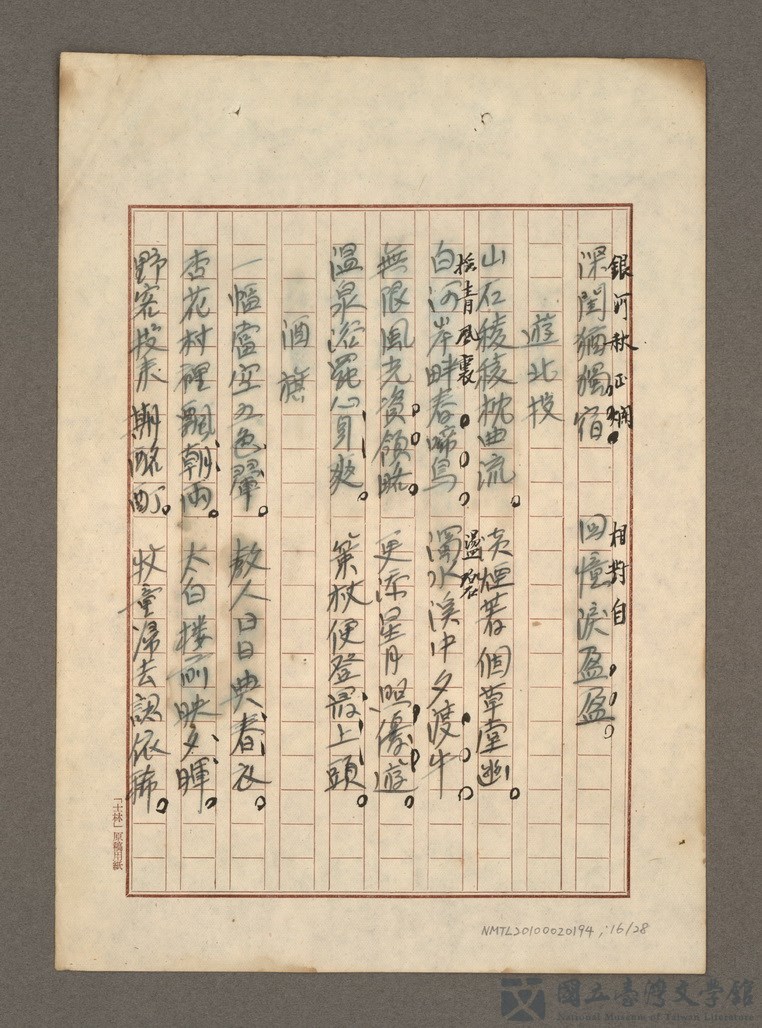 銀河秋正爛 相對自
深閨猶獨宿 回憶淚盈盈。
遊北投
山石稜稜枕曲流。 淡煙著個草堂幽。
拾青風裏 盪碧
白河岸畔春啼鳥 濁水溪中夕渡牛
無限風光資領略 更添星月照優遊。
温泉浴罷心身爽。 策杖便登最上頭。
酒旗
一幅虛空五色翬。 教人日日典春衣。
杏花村裡飄朝雨。 太白楼前映夕暉。
野客投来期酩酊。 牧童归去認依稀。
「士林」原稿用紙
NMTL20100020194 ; 16/28
國立臺灣文學館
National Museum of Taiwan Literature